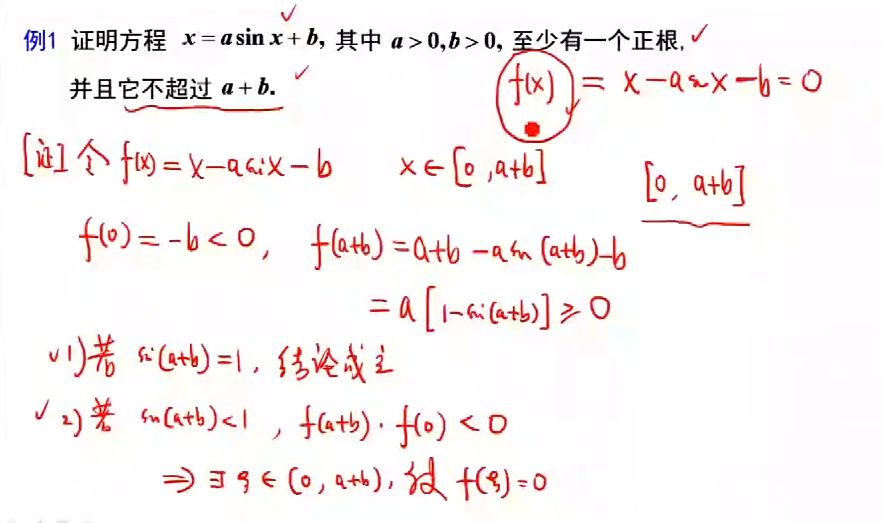 例1 证明方程 x = a sin x + b, 其中 a > 0, b > 0, 至少有一个正根,
并且它不超过 a + b.
f(x) = x - a sin x - b = 0
[证] 令 f(x) = x - a sin x - b   x ∈ [0, a+b]
[0, a+b]
f(0) = -b < 0,  f(a+b) = a+b - a sin(a+b) - b
= a[1 - sin(a+b)] ≥ 0
1) 若 sin(a+b) = 1, 结论成立
2) 若 sin(a+b) < 1, f(a+b)·f(0) < 0
⇒ ∃ ξ ∈ (0, a+b), 使 f(ξ) = 0